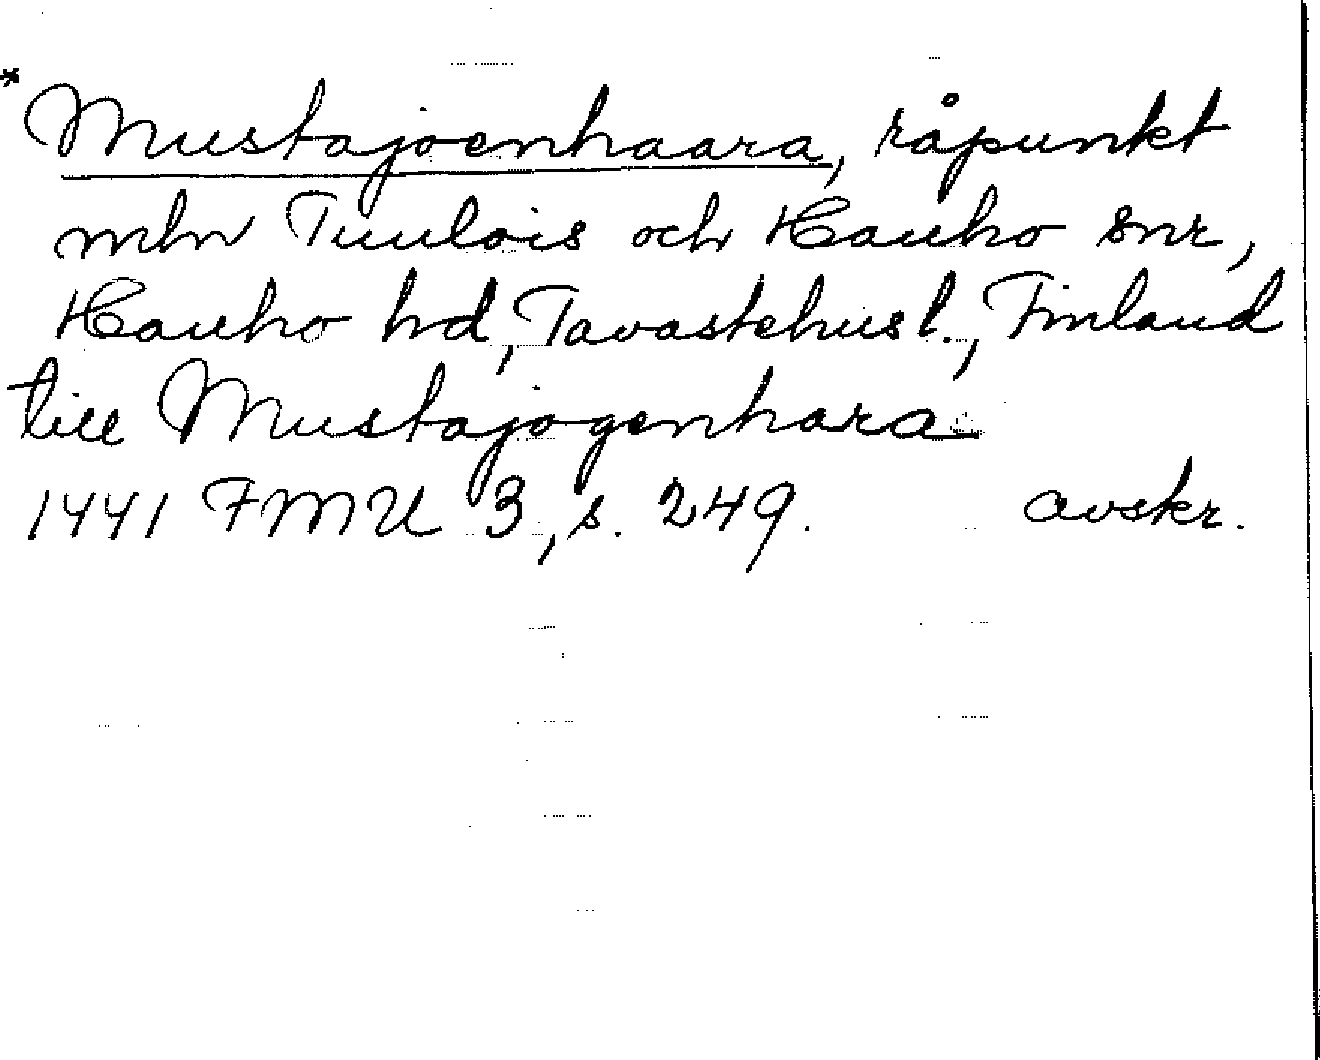 *Mustajoenhaara, råpunkt
mln Tuulois och Hauho snr,
Hauho hd, Tavastehusl., Finland
till Mustajogenhara
1441 FMU 3, s. 249. avskr.